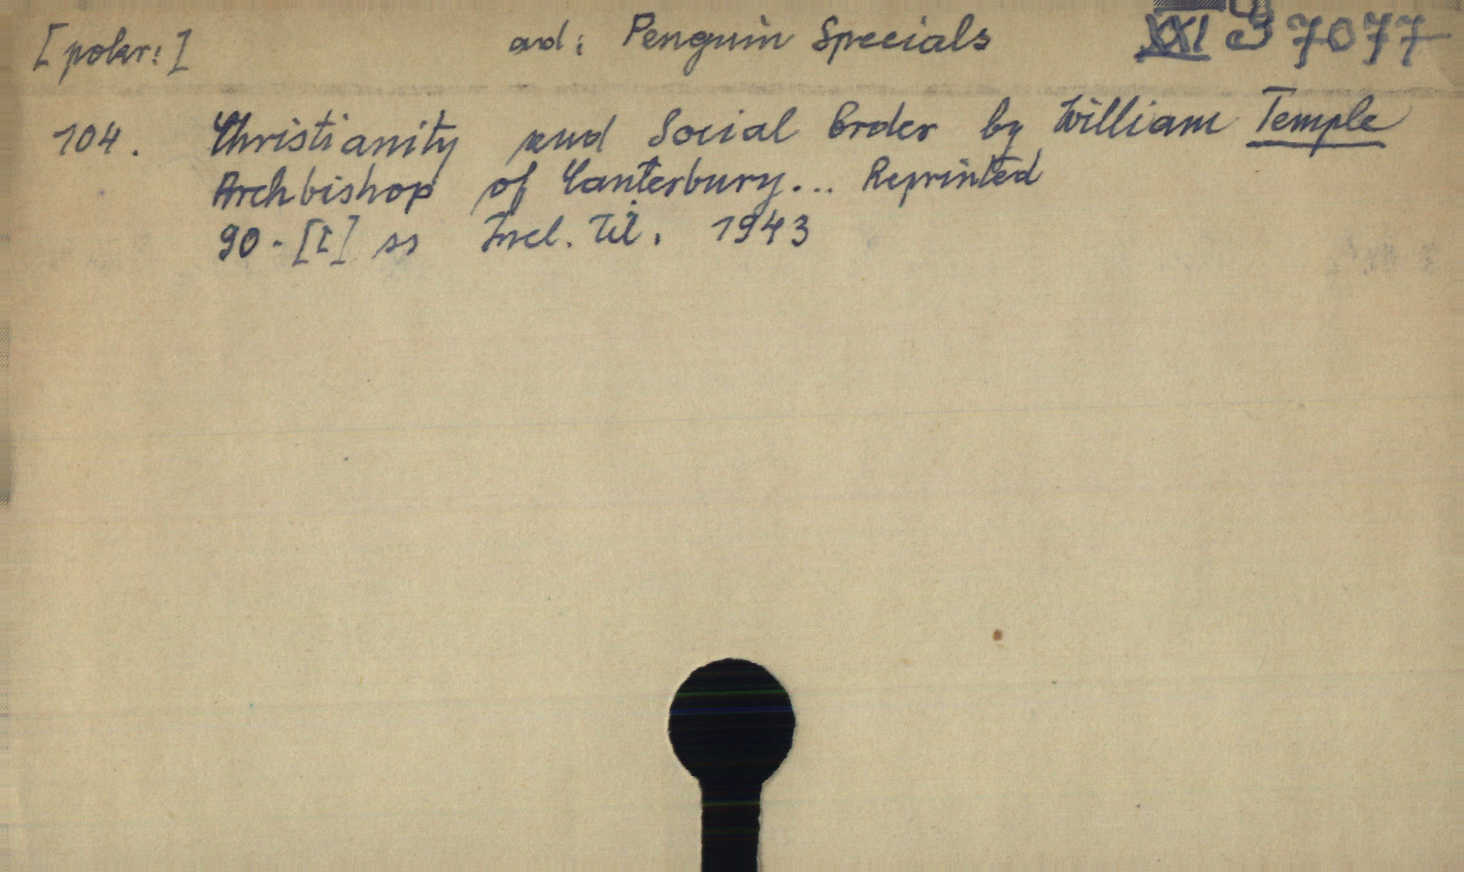 [poker:] ad: Penguin Specials XXI 37077
104. Christianity and Social Order by William Temple
Archbishop of Canterbury... Reprinted
90-[I] ss Incl. Tit. 1943